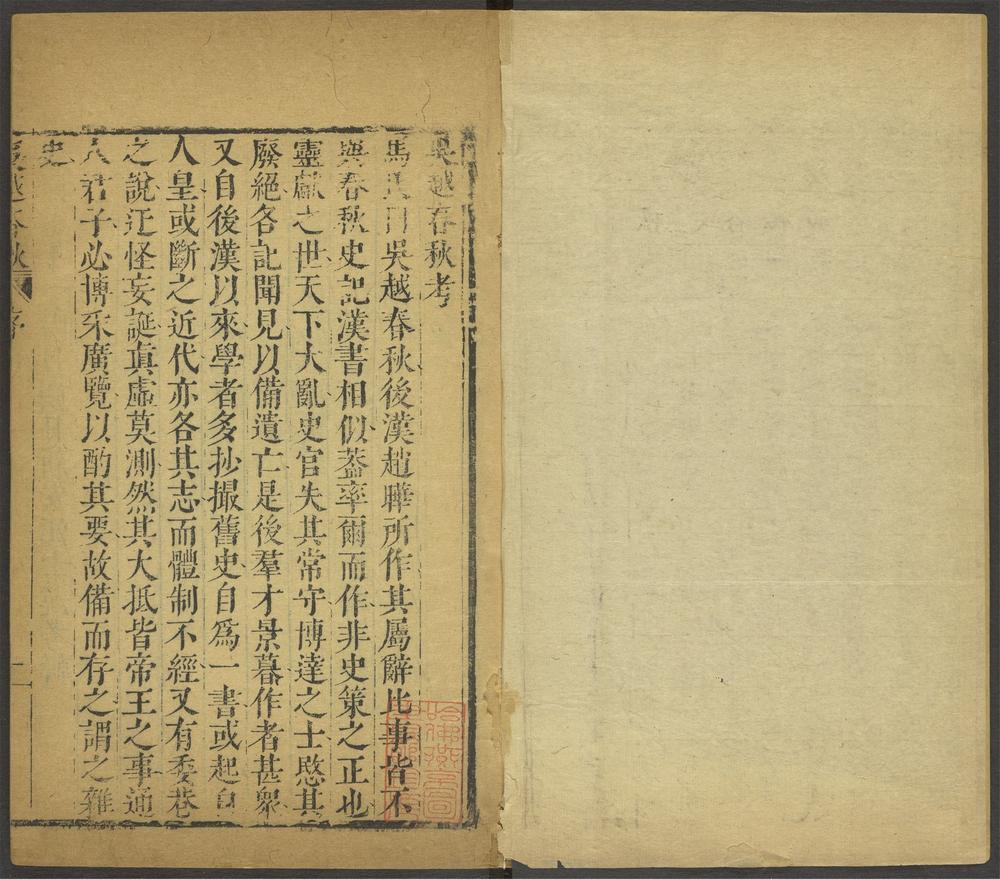 吳越春秋考
馬氏曰吳越春秋後漢趙曄所作其屬辭比事皆不
與春秋史記漢書相似葢率爾而作非史策之正也
靈獻之世天下大亂史官失其常守博達之士愍其
廢絕各記聞見以備遺亡是後羣才景慕作者甚衆
又自後漢以來學者多抄撮舊史自爲一書或起自
人皇或斷之近代亦各其志而體制不經又有委巷
之說迂怪妄誕真虛莫測然其大抵皆帝王之事通
人君子必博采廣覽以酌其要故備而存之謂之雜
史
吳越春秋 序 二